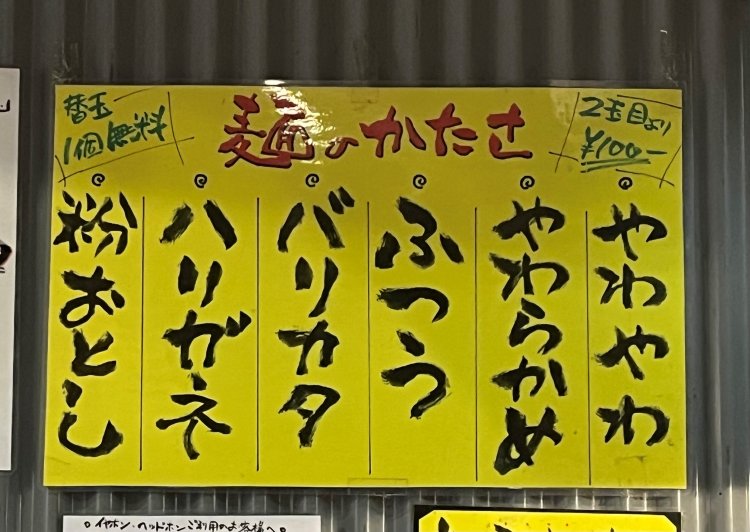 麺のかたさ
替玉
1個無料
2玉目より
¥100-
やわやわ
やわらかめ
ふつう
バリカタ
ハリガネ
粉おとし
○イヤホン・ヘッドホンご利用のお客様へ○